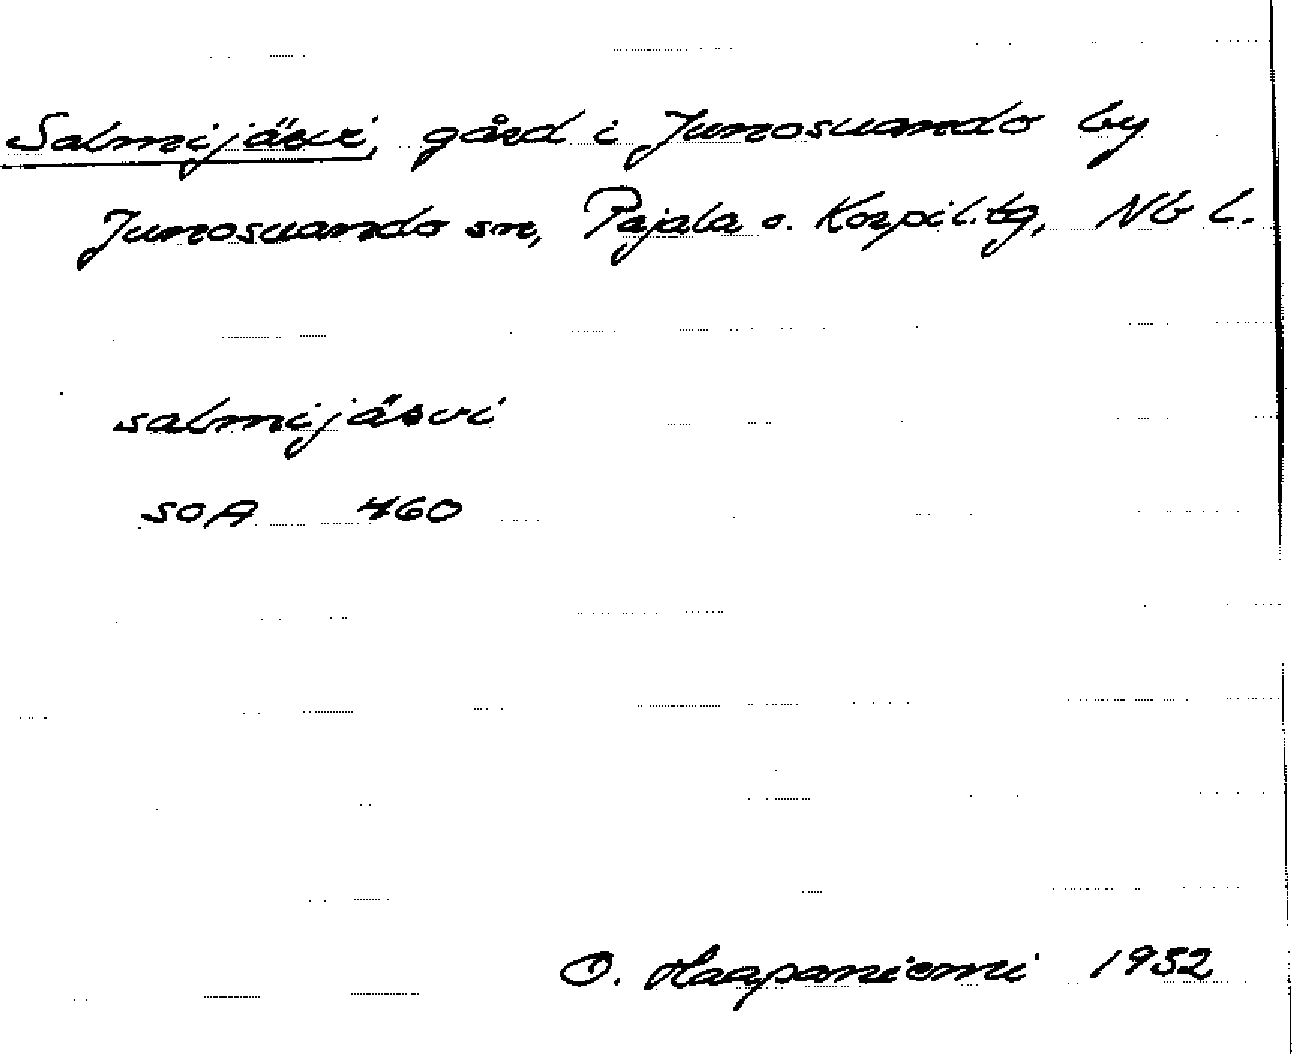 Salmijärvi, gård i Junosuando by
Junosuando sn, Pajala o. Korpil.tg, Nb l.
salmijärvi
SOA 460
O. Haapaniemi 1952